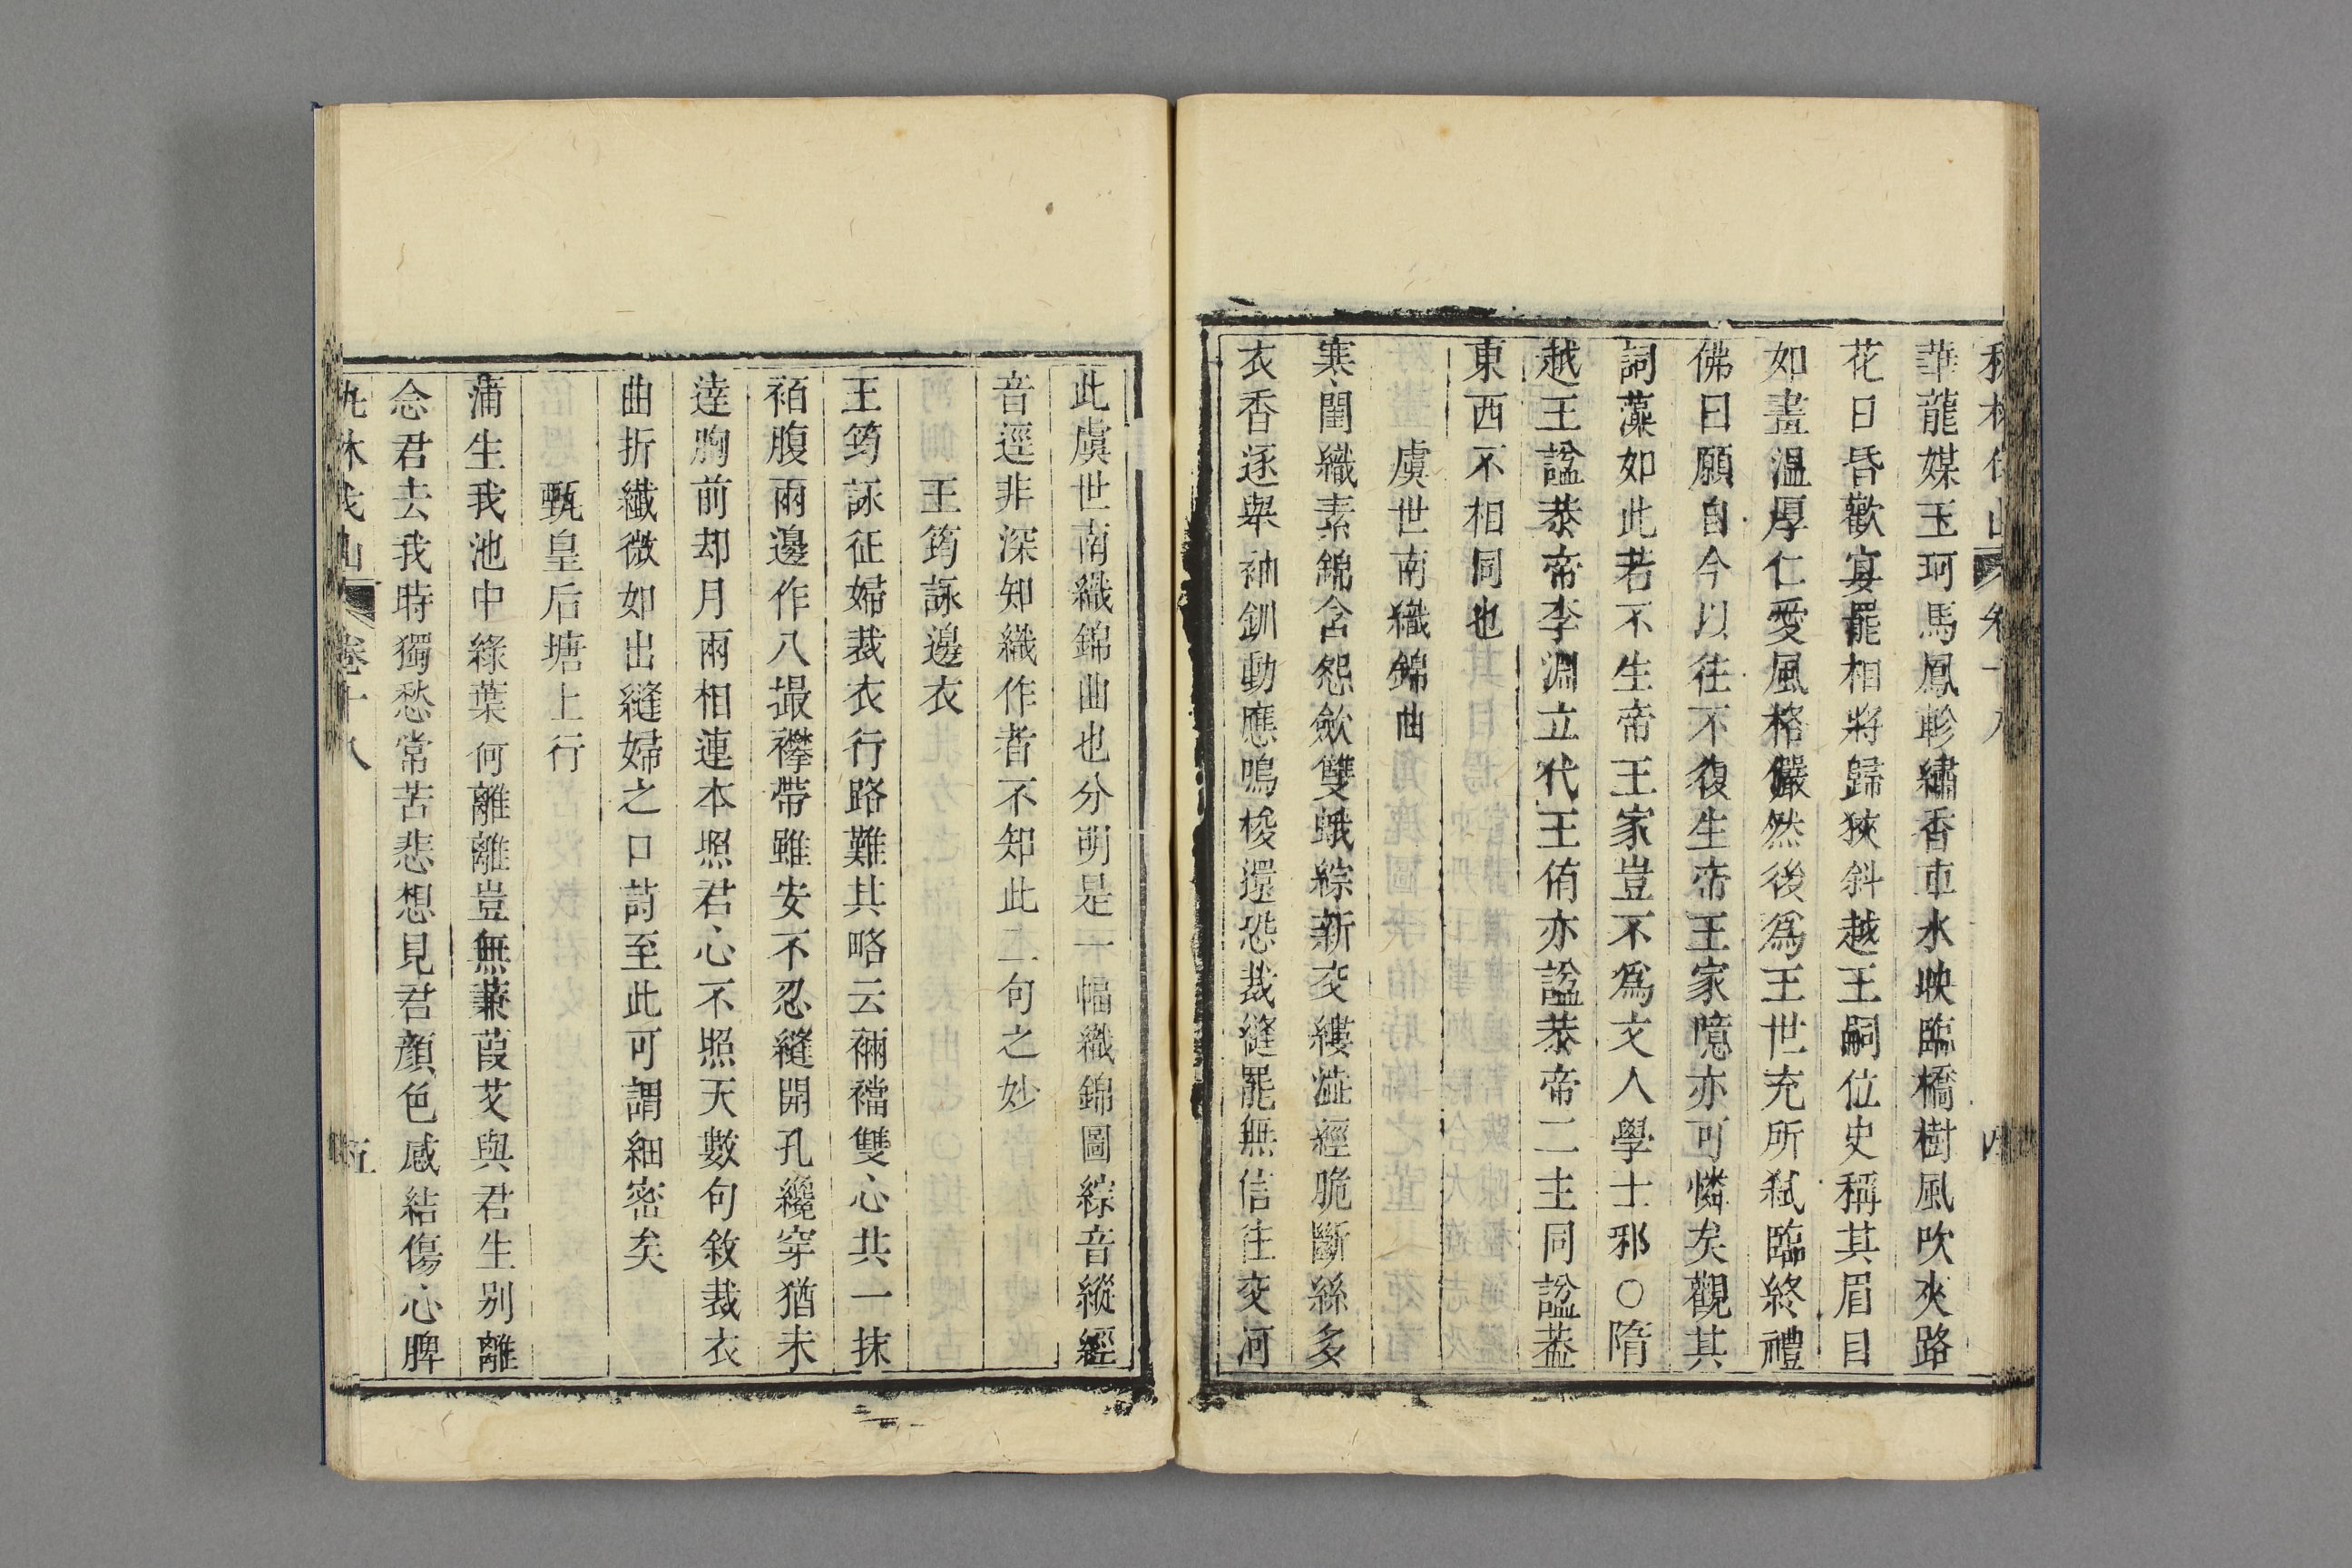 華龍媒玉珂馬鳳軫繡香車水映臨橋樹風吹夾路
花日昏歡宴罷相將歸狹斜越王嗣位史稱其眉目
如畫溫厚仁愛風格儼然後為王世充所弒臨終禮
佛曰願自今以往不復生帝王家噫亦可憐矣觀其
詞藻如此若不生帝王家豈不為文人學士邪○隋
越王諡恭帝李淵立代王侑亦諡恭帝二主同諡葢
東西不相同也
虞世南織錦曲
寒閨織素錦含怨歛雙蛾綜新交縷澁經脆斷絲多
衣香逐舉袖釧動應鳴梭還恐裁縫罷無信往交河
此虞世南織錦曲也分明是一幅織錦圖綜音縱經
音逕非深知織作者不知此二句之妙
王筠詠邊衣
王筠詠征婦裁衣行路難其略云裲襠雙心共一抹
袹腹兩邊作八撮襻帶雖安不忍縫開孔纔穿猶未
達胸前却月兩相連本照君心不照天數句敘裁衣
曲折纎微如出縫婦之口詩至此可謂細密矣
甄皇后塘上行
蒲生我池中綠葉何離離豈無蒹葭艾與君生別離
念君去我時獨愁常苦悲想見君顏色感結傷心脾
卷十八
五